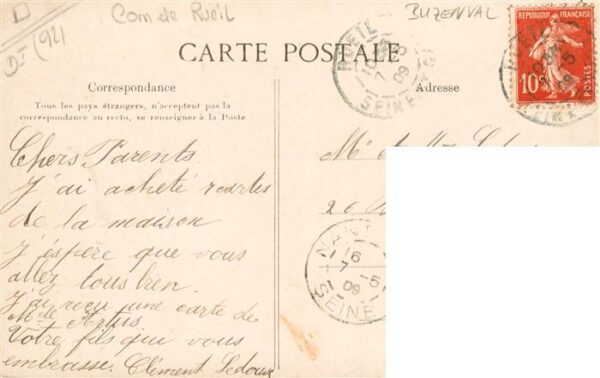 D
DJ (92)
Com de Rueil
BUZENVAL
CARTE POSTALE
RUEIL
7 - 5
09
SEINE
REPUBLIQUE FRANÇAISE
10
POSTES
Correspondance
Adresse
Tous les pays étrangers, n'acceptent pas la
correspondance au recto, se renseigner à la Poste
Chers Parents
J'ai acheté 2 cartes
de la maison
J'espère que vous
allez tous bien
J'ai reçu une carte de
Mme Artus
Votre fils qui vous
embrasse. Clément Ledoux
M et Mme
NAN
16
7 - 5
09
SEINE